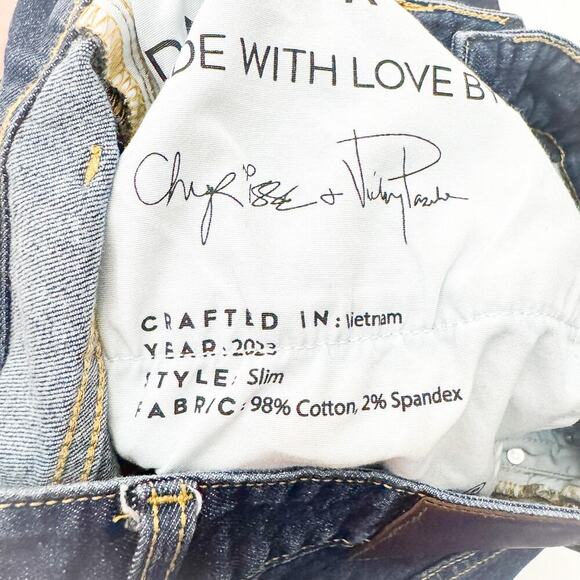 DE WITH LOVE BY
+ Vicky Pasche
CRAFTED IN: Vietnam
YEAR: 2023
STYLE: Slim
FABRIC: 98% Cotton, 2% Spandex